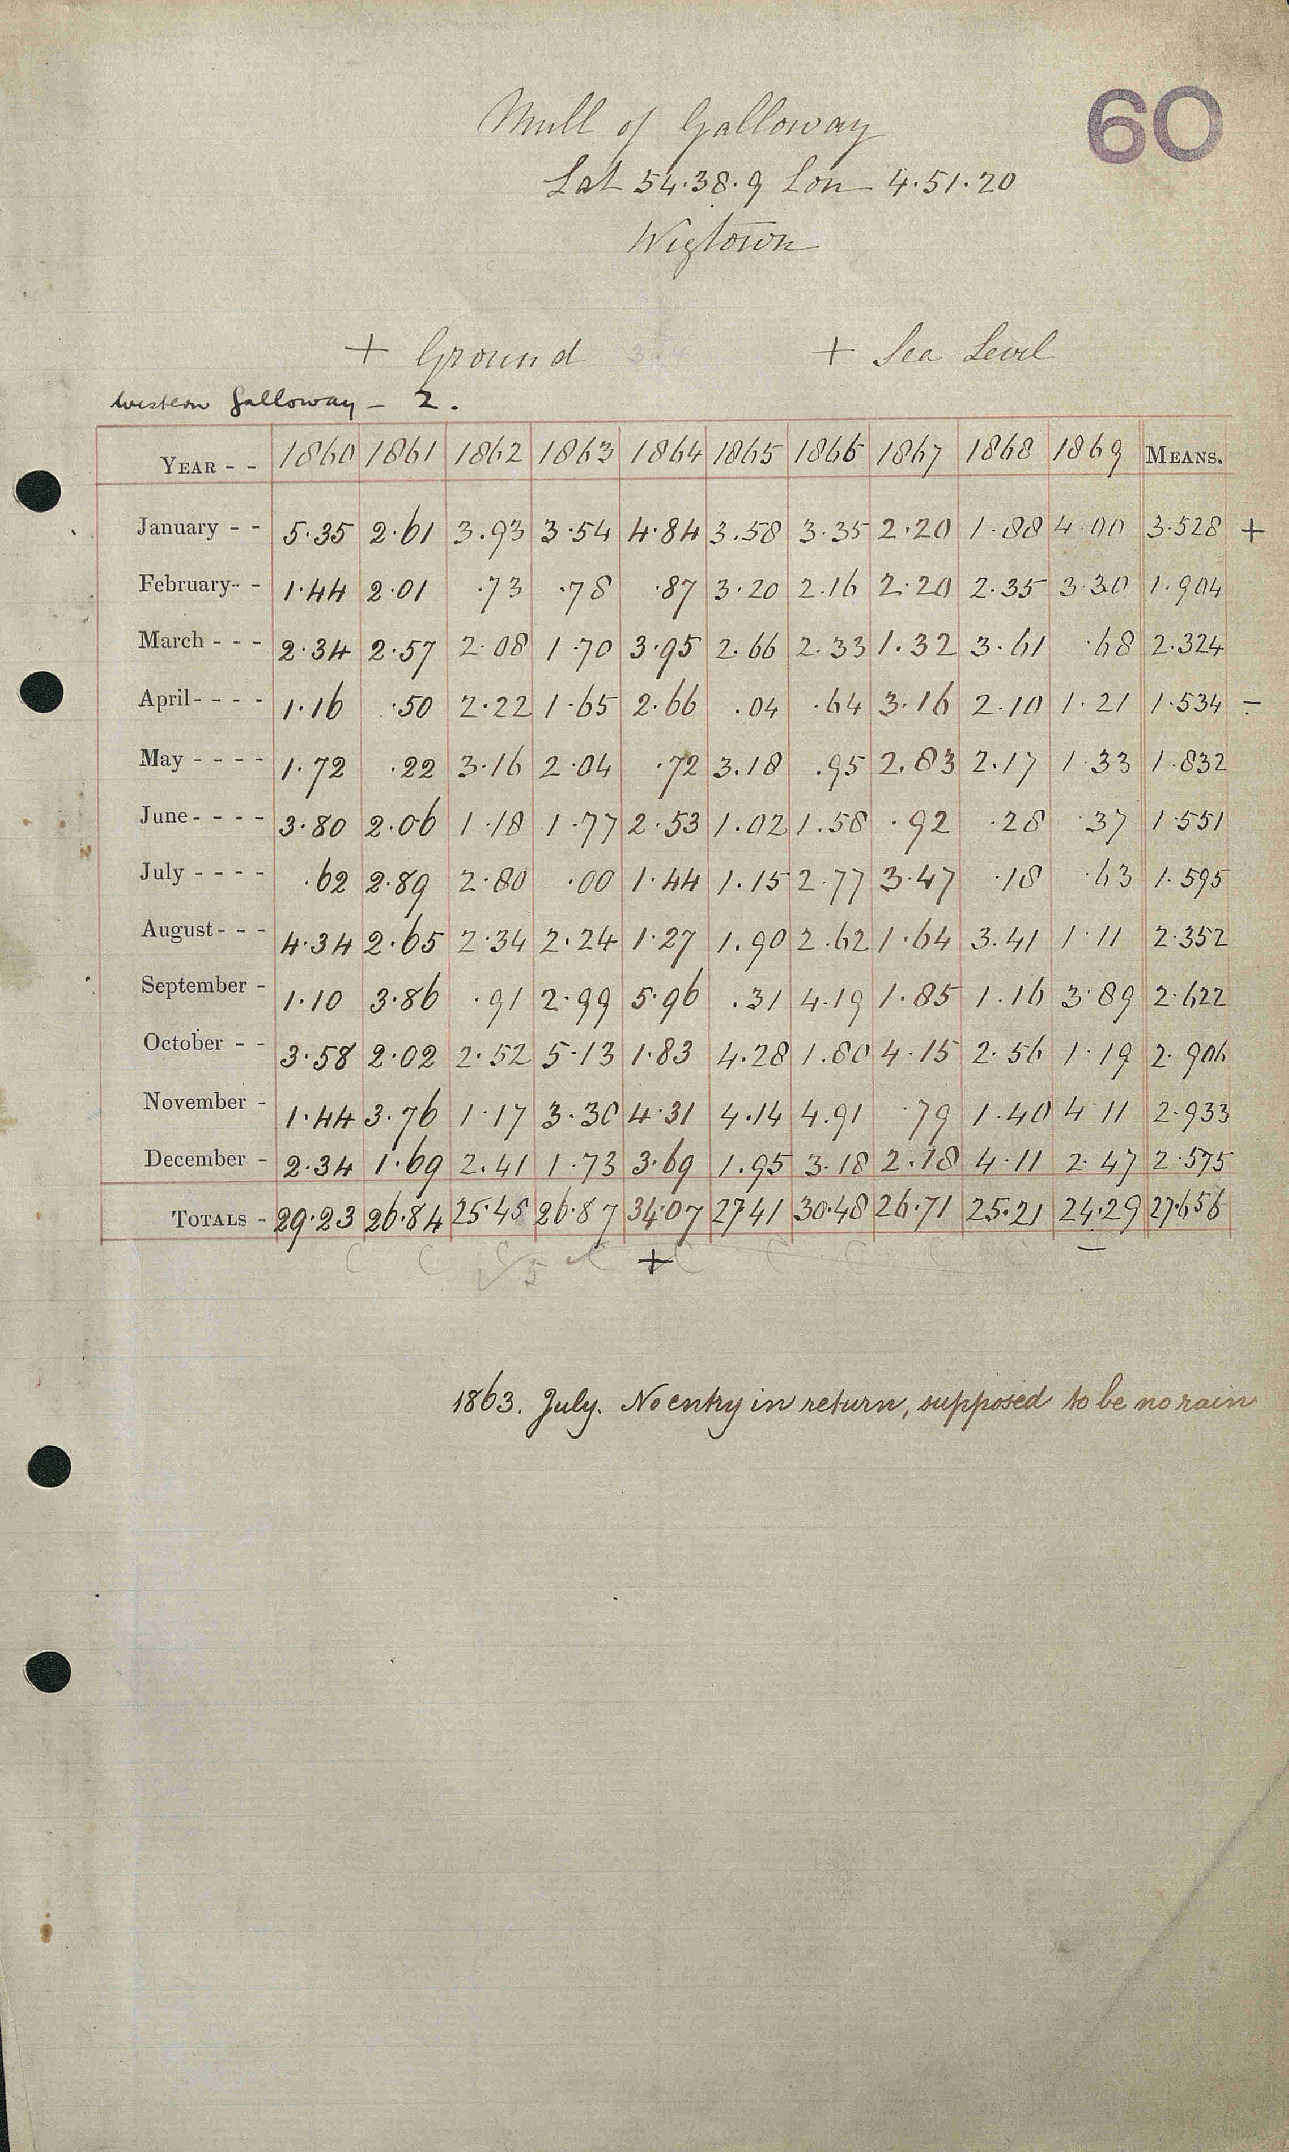 60
Mull of Galloway
Lat 54.38.9 Lon 4.51.20
Wigtown
+ Ground + Sea Level
Western Galloway - 2.
YEAR - - 1860 1861 1862 1863 1864 1865 1866 1867 1868 1869 MEANS.
January - - 5.35 2.61 3.93 3.54 4.84 3.58 3.35 2.20 1.88 4.00 3.528 +
February - - 1.44 2.01 .73 .78 .87 3.20 2.16 2.20 2.35 3.30 1.904
March - - - 2.34 2.57 2.08 1.70 3.95 2.66 2.33 1.32 3.61 .68 2.324
April - - - - 1.16 .50 2.22 1.65 2.66 .04 .64 3.16 2.10 1.21 1.534 -
May - - - - 1.72 .22 3.16 2.04 .72 3.18 .95 2.83 2.17 1.33 1.832
June - - - - 3.80 2.06 1.18 1.77 2.53 1.02 1.58 .92 .28 .37 1.551
July - - - - .62 2.89 2.80 .00 1.44 1.15 2.77 3.47 .18 .63 1.595
August - - - 4.34 2.65 2.34 2.24 1.27 1.90 2.62 1.64 3.41 1.11 2.352
September - 1.10 3.86 .91 2.99 5.96 .31 4.19 1.85 1.16 3.89 2.622
October - - 3.58 2.02 2.52 5.13 1.83 4.28 1.80 4.15 2.56 1.19 2.906
November - 1.44 3.76 1.17 3.30 4.31 4.14 4.91 .79 1.40 4.11 2.933
December - 2.34 1.69 2.41 1.73 3.69 1.95 3.18 2.18 4.11 2.47 2.575
TOTALS - 29.23 26.84 25.45 26.87 34.07 27.41 30.48 26.71 25.21 24.29 27.656
C C C ✓5 C + C C C C -
1863. July. No entry in return, supposed to be no rain